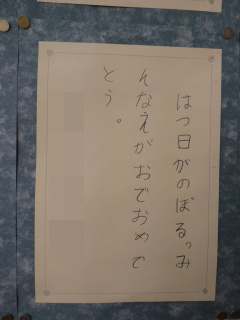 はつ日がのぼるっみ
んなえがおでおめで
とう。